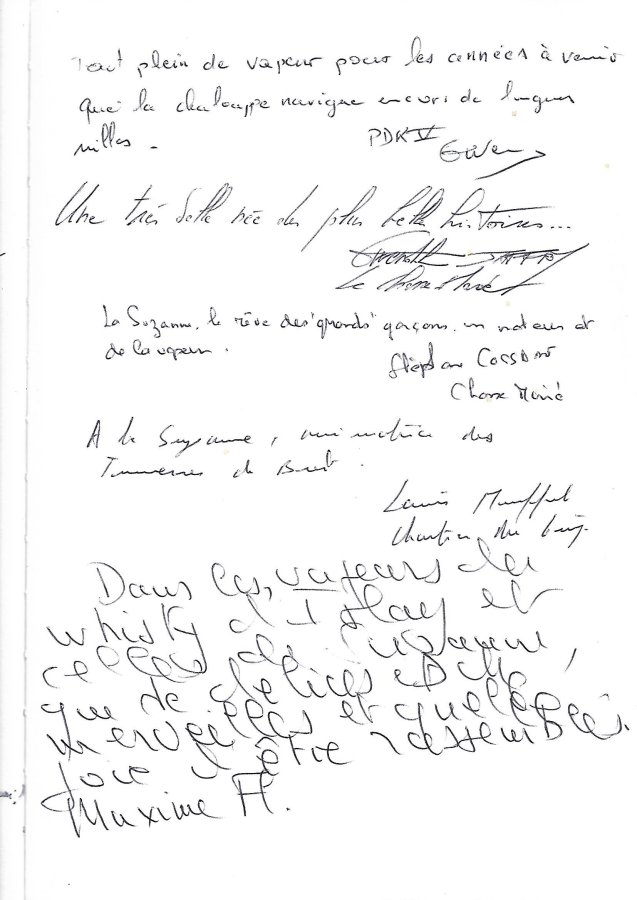 Tout plein de vapeur pour les années à venir
Que la chaloupe navigue encore de longues
milles.
PDK V
Gwen
Une très belle née des plus belle histoires...
Le Chasse Marée
La Suzanne, le rêve des "grands" garçons, un moteur et
de la vapeur.
Stéphane COSSDAN
Chasse Marée
A la Suzanne, animatrice des
Tonnerres de Brest.
Louis
Chantier du Guip
Dans les vapeurs du
whisky d'Islay et
celles de Suzanne,
que de délices &
merveilles et quelle
joie d'être rassemblés.
Maxime A.